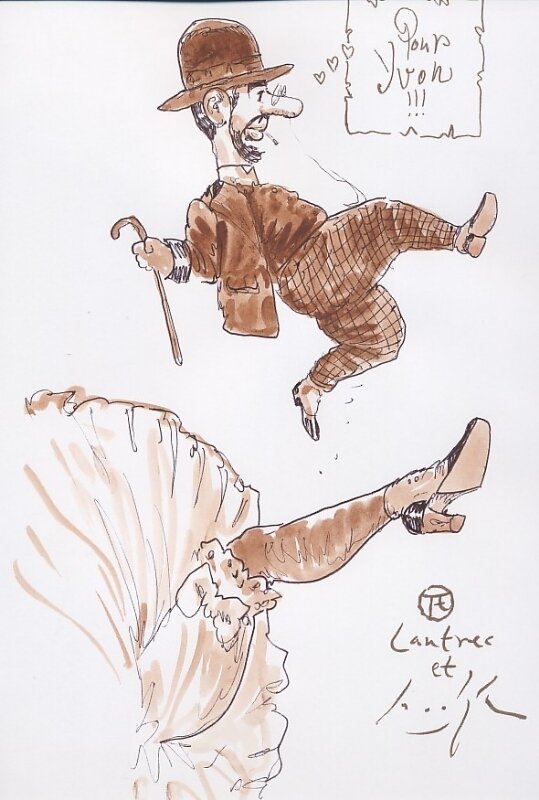 Pour
Yvon
!!!
Lautrec
et